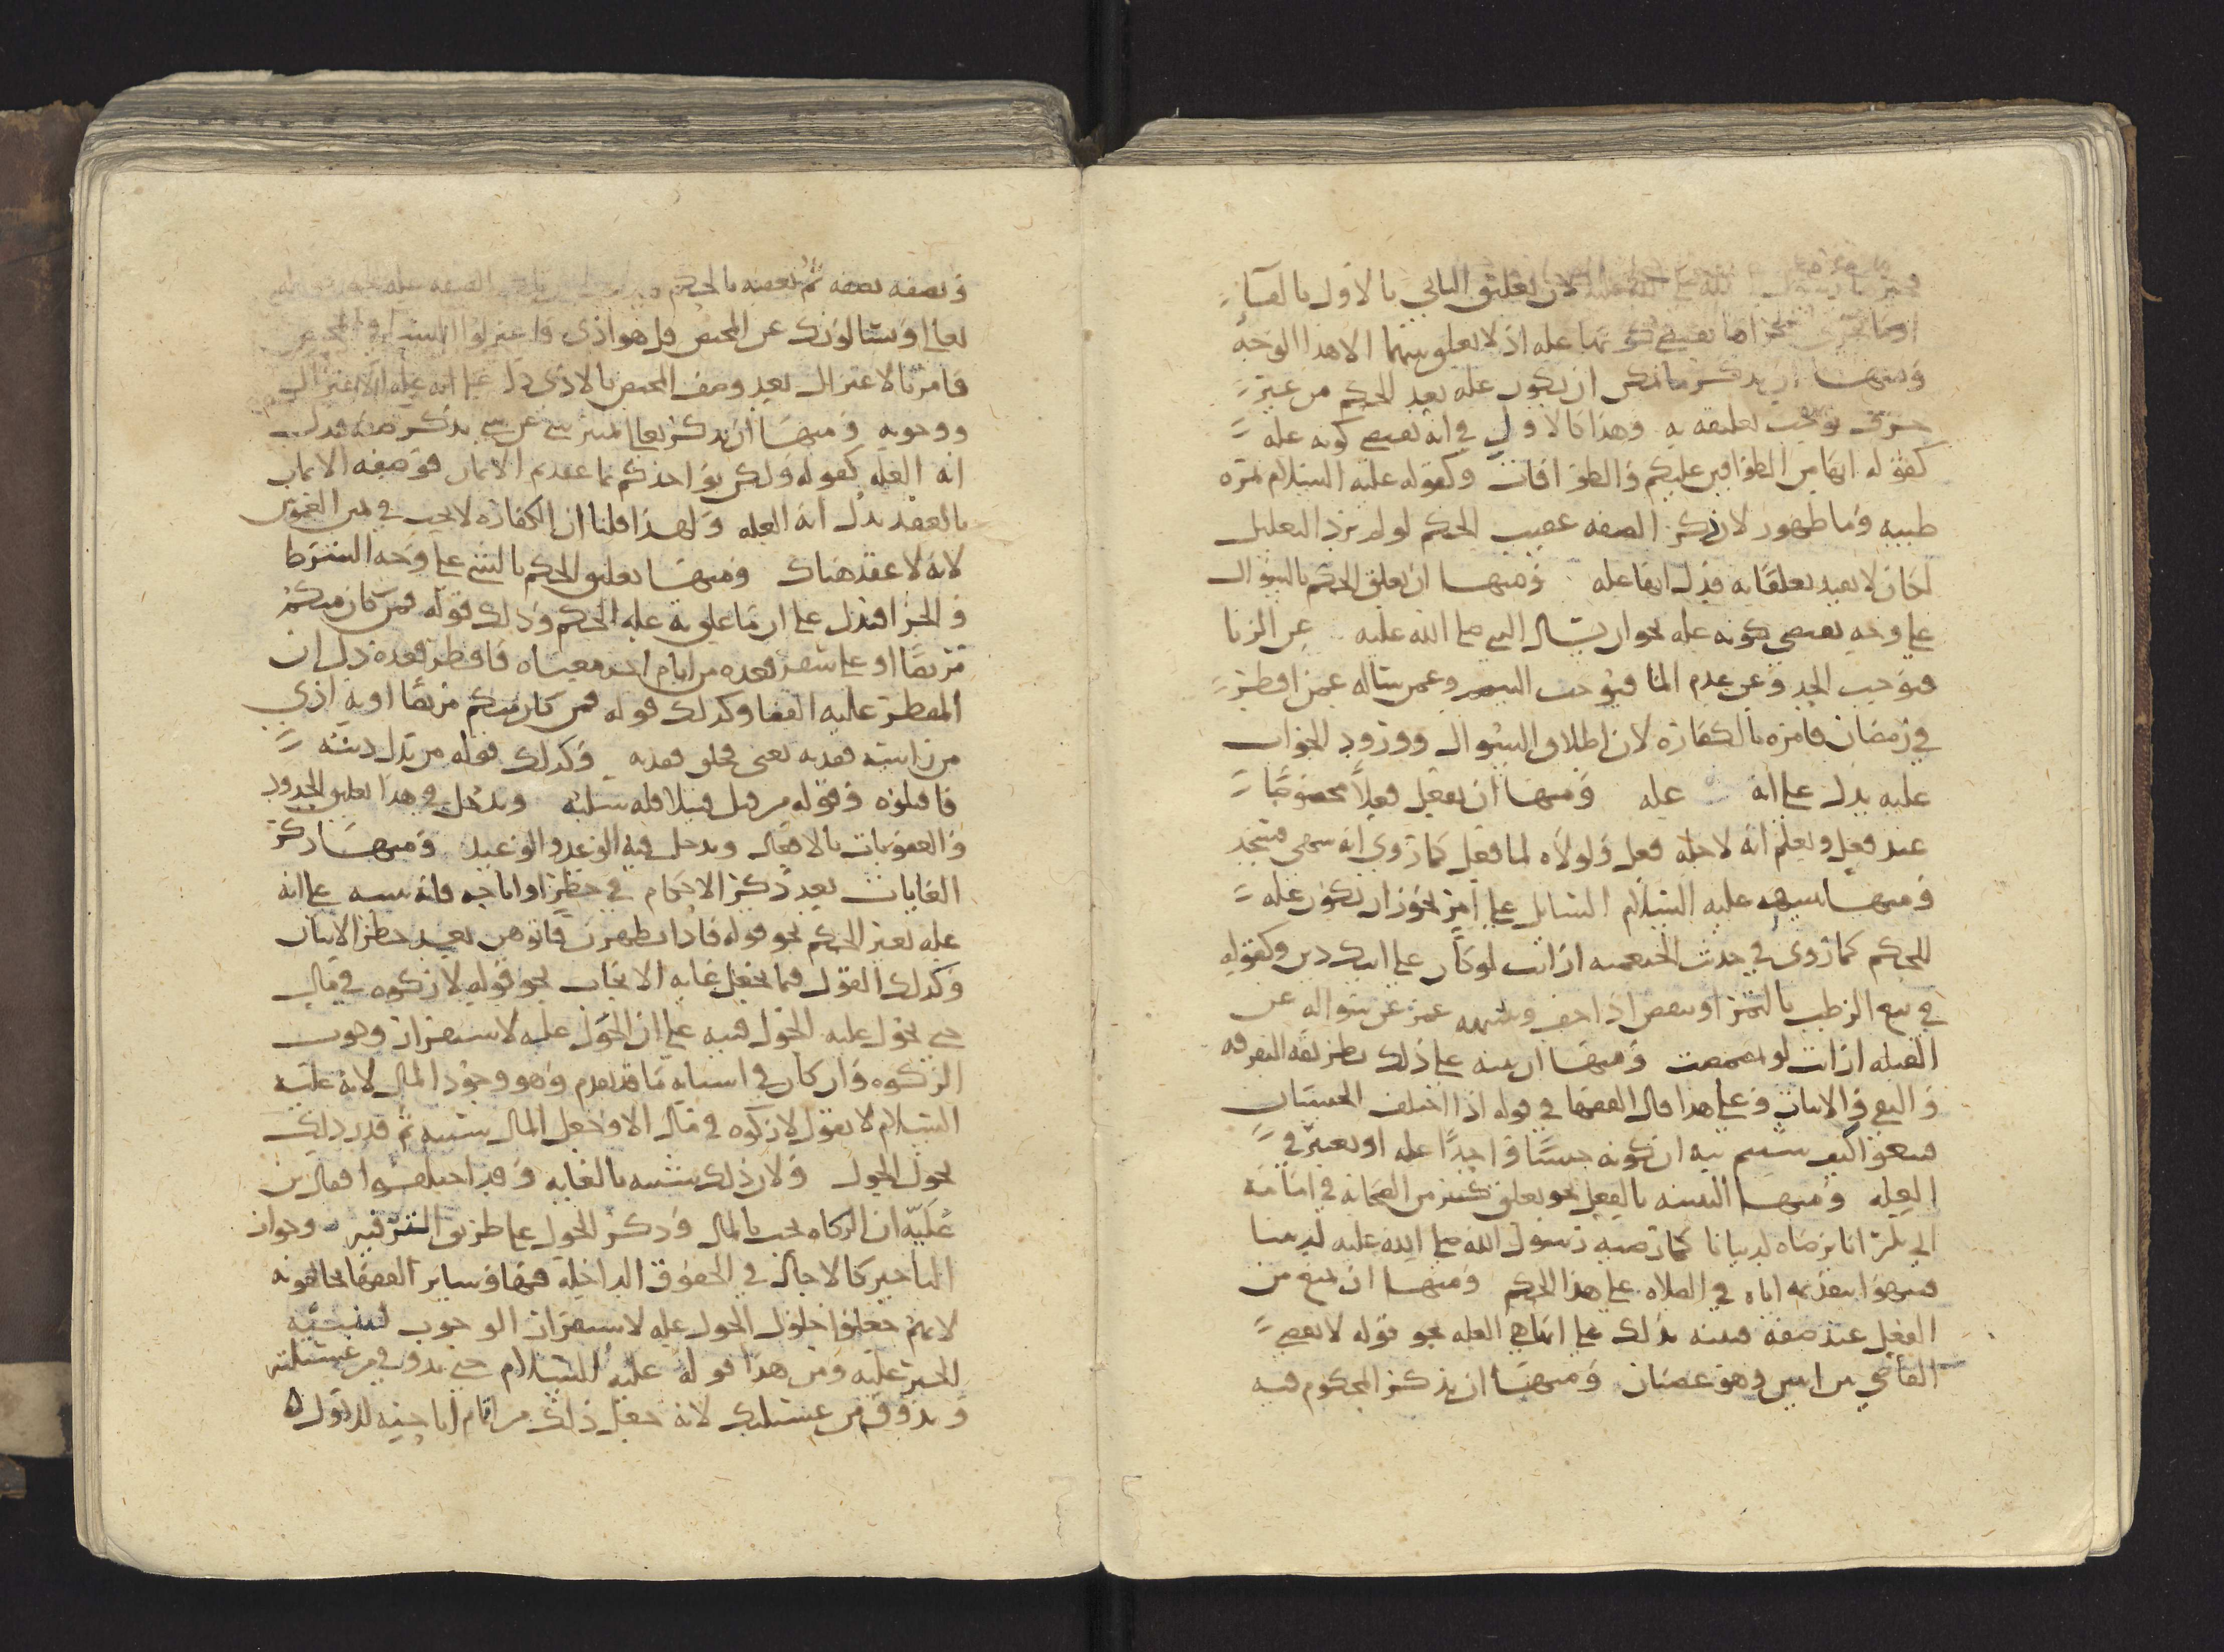 لان تعليق الثاني بالاول بالفآ
نها عله اذ لا تعلق بينهما الا هذا الوجه
ومنها ان يذكر ما يمكن ان يكون عله بعد الحكم من غير
حرف يوجب تعليقه به وهذا كالاول في انه يقتضي كونه عله
كقوله انها من الطوافين عليكم والطوافات وكقوله عليه السلام تمره
طيبه وما طهور لان ذكر الصفه عقيب الحكم لو لم يرد التعليل
لكان لا يفيد تعلقا به فدل انها عله ومنها ان يعلق الحكم بالسوال
على وجه يقتضي كونه عله نحو ان يسال النبي صلى الله عليه عن الزنا
فيوجب الحد وعن عدم الما فيوجب التيمم وعمن ساله عمن افطر
في رمضان فامره بالكفاره لان اطلاق السوال وورود الجواب
عليه يدل على انه عله ومنها ان يفعل فعلا مخصوصا
عند فعل ويعلم انه لاجله فعل ولولاه لما فعل كما روي انه سهى فسجد
ومنها تنبيهه عليه السلام السايل على امر يجوز ان يكون عله
للحكم كما روى في حديث الخثعميه ارايت لو كان على ابيك دين وكقوله
في بيع الرطب بالتمر او ينقص اذا جف وتنبيهه عمر عن سواله عن
القبله ارايت لو تمضمضت ومنها ان ينبه على ذلك بطريقه التفرقه
والبيع والاتيان وعلى هذا قال الفقها في قوله اذا اختلف الجنسان
فبيعوا كيف شيتم نبه ان كونه جنسا واحدا عله او بعض
العله ومنها التنبيه بالفعل نحو تعلق كثير من الصحابه في امامه
ابي بكر انا نرضاه لدنيانا كما رضيه رسول الله صلى الله عليه لديننا
فنبهوا بتقديمه اياه في الصلاه على هذا الحكم ومنها ان يمنع من
الفعل عند صفه فينبه بذلك على انها هي العله نحو قوله لا يقضي
القاضي بين اثنين وهو غضبان ومنها ان يذكر المحكوم فيه
ويصفه بصفه ثم يعقبه بالحكم
تعالى ويسالونك عن المحيض قل هو اذى فاعتزلوا النسا في المحيض
فامر بالاعتزال بعد وصف المحيض بالاذى دل على انه عله الاعتزال
ووجوبه ومنها ان يذكر تعالى لتمييز شي عن شي بذكر صفه فدل
انه العله كقوله ولكن يواخذكم بما عقدتم الايمان فوصفه الايمان
بالعقد يدل انه العله ولهذا قلنا ان الكفاره لا تجب في يمين الغموس
لانه لا عقد هناك ومنها تعليق الحكم بالشي على وجه الشرط
والجزا فيدل على ان ما علق به عله الحكم وذلك قوله فمن كان منكم
مريضا او على سفر فعده من ايام اخر معناه فافطر فعده دل ان
المفطر عليه القضا وكذلك قوله فمن كان منكم مريضا او به اذى
من راسه ففديه يعني فحلق ففديه وكذلك قوله من بدل دينه
فاقتلوه وقوله من قتل قتيلا فله سلبه ويدخل في هذا تعليق الحدود
والعقوبات بالافعال ويدخل فيه الوعد والوعيد ومنها ذكر
الغايات بعد ذكر الاحكام في حظر او اباحه فانه ينبه على انه
عله تغير الحكم نحو قوله فاذا تطهرن فاتوهن بعد حظر الاتيان
وكذلك القول فيما يجعل غايه الايجاب نحو قوله لا زكوه في مال
حتى يحول عليه الحول فنبه على ان الحول عله لاستقرار وجوب
الزكوه وان كان في اسبابه ما قد تقدم وهو وجود المال لانه عليه
السلام لا يقول لا زكوه في مال الا وجعل المال سببه ثم قدر ذلك
بحول الحول ولان ذلك شبيه بالغايه وقد اختلفوا فقال بن
عليه ان الزكاه تجب بالمال وذكر الحول على طريق الترفيه وجواز
التاخير كالاجال في الحقوق الداخله فيها وساير الفقها يخالفونه
لانهم جعلوا حلول الحول عله لاستقرار الوجوب لتنبيه
الخبر عليه ومن هذا قوله عليه السلام حتى يذوق من عسيلته
وتذوق من عسيلتك لانه جعل ذلك من تمام اباحته للاول